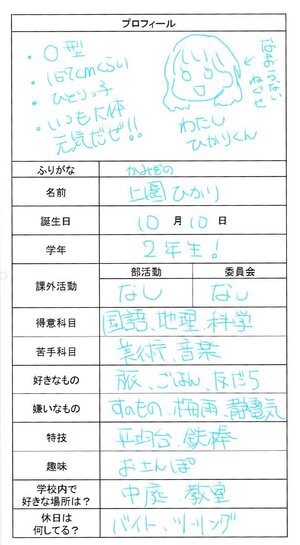 プロフィール
・O型
・167cmくらい
・ひとりっ子
・いつも大体
元気だぜ!!
なおらない
ねぐせ
わたし
ひかりくん
ふりがな
かみぞの
名前
上園 ひかり
誕生日
10 月 10 日
学年
2年生!
課外活動
部活動 委員会
なし なし
得意科目
国語、地理、科学
苦手科目
美術、音楽
好きなもの
旅、ごはん、友だち
嫌いなもの
すのもの、梅雨、静電気
特技
平均台、鉄棒
趣味
おさんぽ
学校内で
好きな場所は?
中庭、教室
休日は
何してる?
バイト、ツーリング